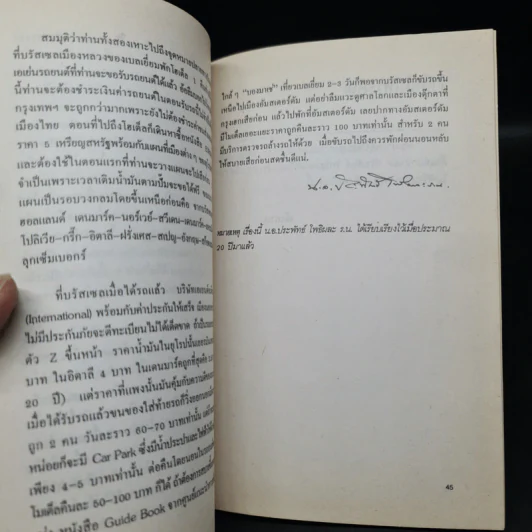 สมมุติว่าท่านทั้งสองเหาะไปถึงจุดหมายปลายทาง
ที่บรัสเซลเมืองหลวงของเบลเยี่ยมพักโฮเต็ล 1 คืน
เอเย่นรถยนต์ที่ท่านจะขอรับรถยนต์ได้แล้ว
นี้ท่านจะต้องชำระเงินค่ารถยนต์ในตอนรับรถ
กรุงเทพฯ จะถูกกว่ามากเพราะยังไม่ต้องชำระค่า
เมืองไทย ตอนที่ไปถึงโฮเต็ลก็เดินหาซื้อหนังสือ
ราคา 5 เหรียญสหรัฐพร้อมกับแผนที่เมืองต่าง ๆ
และต้องใช้ในตอนแรกที่ท่านจะวางแผน
จำเป็นเพราะเวลาเติมน้ำมันตามปั๊มจะขอได้ฟรี
แผนเป็นรอบวงกลมโดยขึ้นเหนือก่อนคือ
ฮอลแลนด์ เดนมาร์ค-นอร์เวย์-สวีเดน-เดนมาร์ค
ไปลิเวีย-กรีก-อิตาลี-ฝรั่งเศส-สเปญ-อังกฤษ
ลุกเซ็มเบอกร์
ที่บรัสเซลเมื่อได้รถแล้ว บริษัท
(International) พร้อมกับค่าประกันให้เสร็จ
ไม่มีประกันภัยจะตีทะเบียนไม่ได้เด็ดขาด
ตัว Z ขึ้นหน้า ราคาน้ำมันในยุโรปนั้น
บาท ในอิตาลี 4 บาท ในเดนมาร์คถูกที่สุด
20 ปี) แต่ราคาที่แพงนั้นมันคุ้มกับความ
เมื่อได้รับรถแล้วขนของใส่ท้ายรถก็วิ่งออก
ถูก 2 คน วันละราว 60-70 บาทเท่านั้น
หน่อยก็จะมี Car Park ซึ่งมีน้ำประปาและไฟฟ้า
เพียง 4-5 บาทเท่านั้น ต่อคืนโดยนอนใน
โมเต็ลคืนละ 50-100 บาท ก็ได้ ถ้าต้องการ
หนังสือ Guide Book จากศูนย์
ใกล้ ๆ "บองมาเช่" เที่ยวเบลเยี่ยม 2-3 วันก็พอจากบรัสเซลก็ขับรถขึ้น
เหนือไปเมืองอัมสเตอร์ดัม แต่อย่าลืมแวะดูศาลโลกและเมืองตุ๊กตาที่
กรุงเฮกเสียก่อน แล้วไปพักที่อัมสเตอร์ดัม เลยปากทางอัมสเตอร์ดัม
มีโมเต็ลเยอะและราคาถูกคืนละราว 100 บาทเท่านั้น สำหรับ 2 คน
มีบริการตรวจรถล้างรถให้ด้วย เมื่อขับรถไปถึงควรพักผ่อนนอนหลับ
ให้สบายเสียก่อนสดชื่นดีแน่.
หมายเหตุ เรื่องนี้ น.อ.ประพัทธ์ โพธิผละ ร.น. ได้เรียบเรียงไว้เมื่อประมาณ
20 ปีมาแล้ว
45